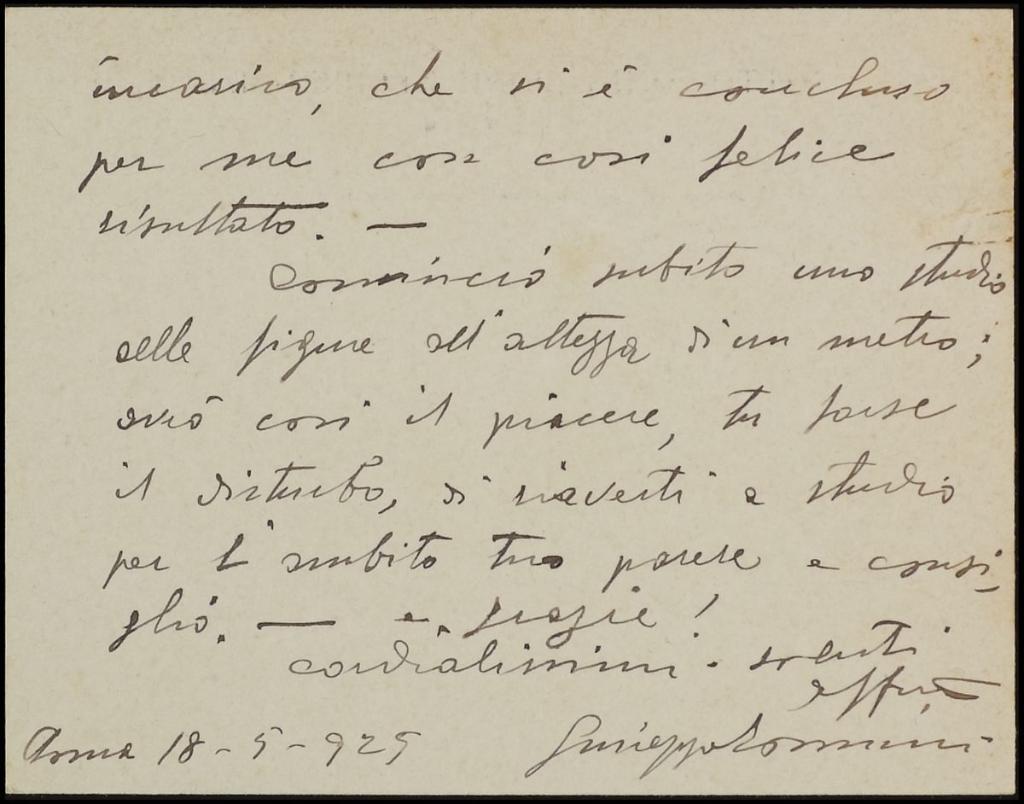 incarico, che si è concluso
per me con così felice
risultato. —
Comincio subito uno studio
delle figure all'altezza di un metro;
avrò così il piacere, tu forse
il disturbo, di riaverti a studio
per l'ambito tuo parere e consi-
glio. — e grazie!
cordialissimi saluti
aff.mo
Roma 18-5-925 Giuseppe Tonnini